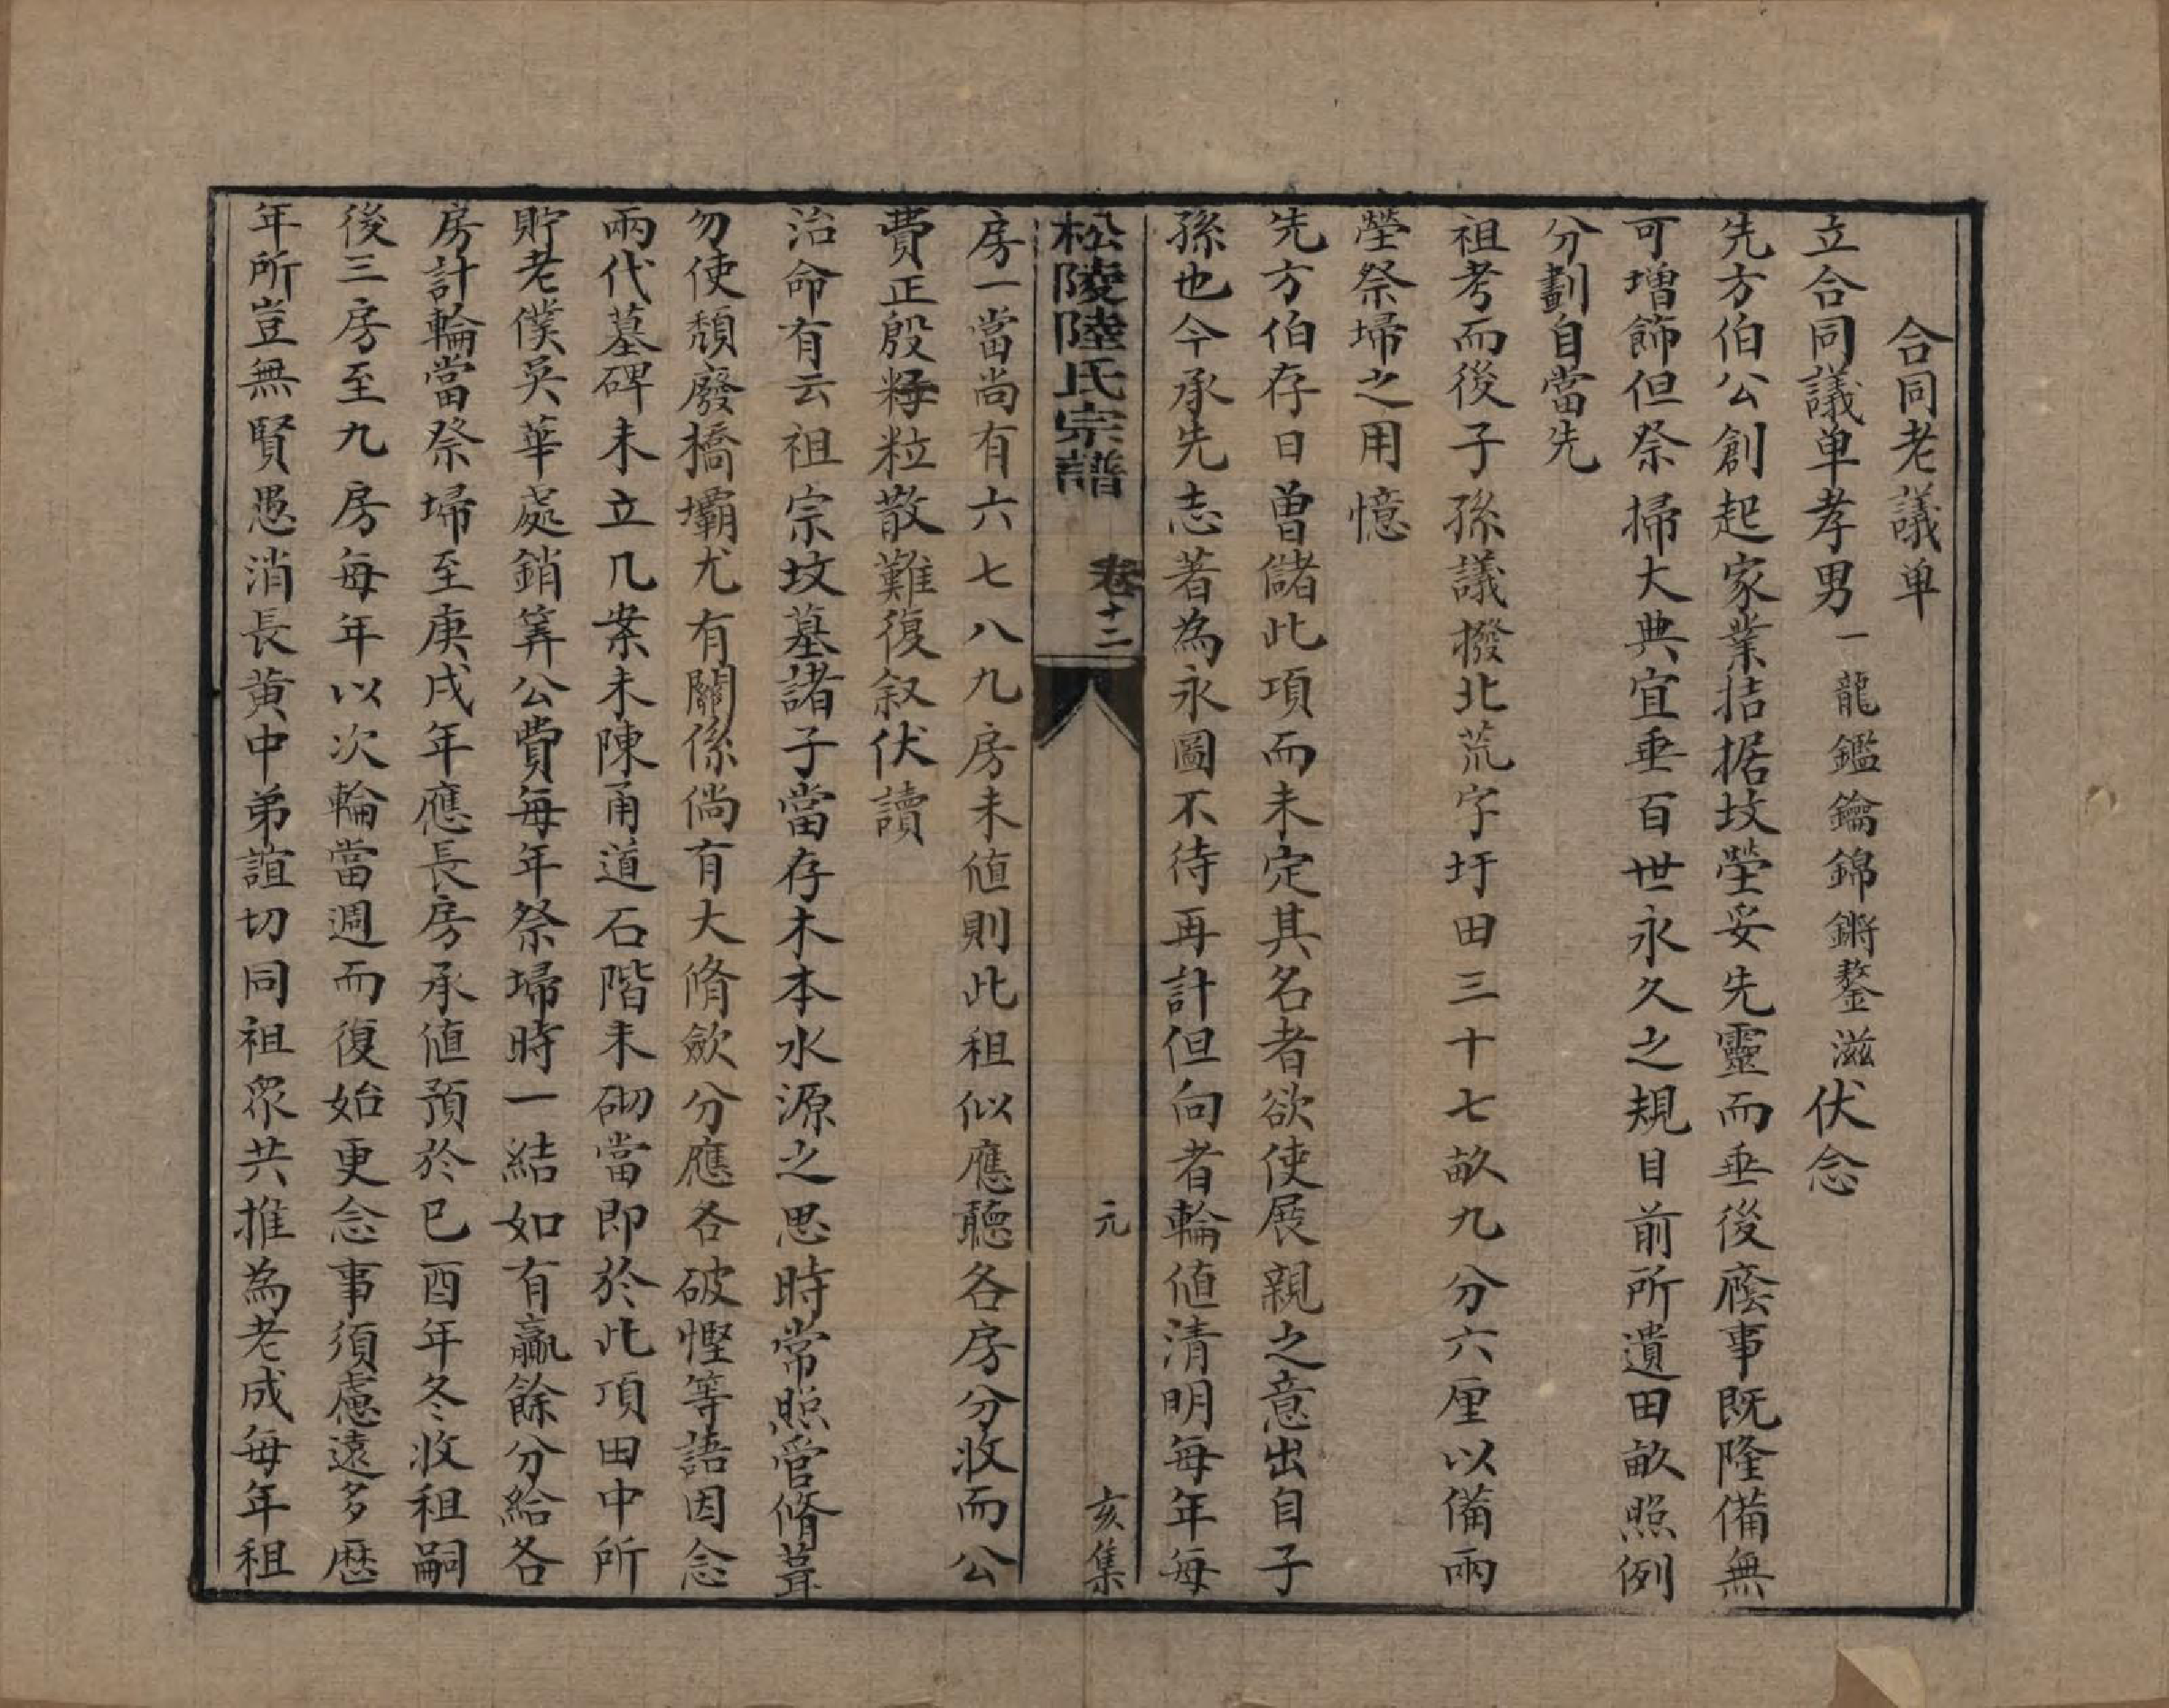 合同老議单
立合同議单孝男一龍鑑鑰錦鏘鏊滋伏念
先方伯公創起家業拮据坟塋妥先靈而垂後廕事既隆備無
可增飾但祭掃大典宜垂百世永久之規目前所遺田畝照例
分劃自當先
祖考而後子孫議撥北荒字圩田三十七畝九分六厘以備兩
塋祭埽之用憶
先方伯存日曽儲此項而未定其名者欲使展親之意出自子
孫也今承先志著為永圖不待再計但向者輪値清明每年每
松陵陸氏宗譜 卷十二 元 亥集
房一當尚有六七八九房未値則此租似應聽各房分收而公
費正殷籽粒散難復叙伏讀
治命有云祖宗坟墓諸子當存木本水源之思時常照管脩葺
勿使頽廢橋壩尤有關係倘有大脩歛分應各破慳等語因念
兩代墓碑未立几案未陳甬道石階未砌當即於此項田中所
貯老僕吳華處銷筭公費每年祭埽時一結如有贏餘分給各
房計輪當祭埽至庚戌年應長房承値預於已酉年冬收租嗣
後三房至九房每年以次輪當週而復始更念事須慮遠多歷
年所豈無賢愚消長黄中弟誼切同祖眾共推為老成每年租